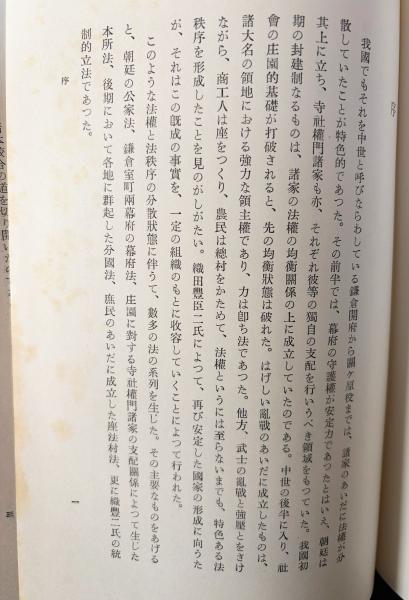 序
我國でもそれを中世と呼びならわしている鎌倉開府から關ケ原役までは、諸家のあいだに法權が分
散していたことが特色的であつた。その前半では、幕府の守護權が安定力であつたとはいえ、朝廷は
其上に立ち、寺社權門諸家も亦、それぞれ彼等の獨自の支配を行いうべき領域をもつていた。我國初
期の封建制なるものは、諸家の法權の均衡關係の上に成立していたのである。中世の後半に入り、社
會の庄園的基礎が打破されると、先の均衡狀態は破れた。はげしい亂戰のあいだに成立したものは、
諸大名の領地における強力な領主權であり、力は卽ち法であつた。他方、武士の亂戰と強壓とをさけ
ながら、商工人は座をつくり、農民は總村をかためて、法權というには至らないまでも、特色ある法
秩序を形成したことを見のがしがたい。織田豐臣二氏によつて、再び安定した國家の形成に向うた
が、それはこの旣成の事實を、一定の組織のもとに收容していくことによつて行われた。
このような法權と法秩序の分散狀態に伴うて、數多の法の系列を生じた。その主要なものをあげる
と、朝廷の公家法、鎌倉室町兩幕府の幕府法、庄園に對する寺社權門諸家の支配關係によつて生じた
本所法、後期において各地に群起した分國法、庶民のあいだに成立した座法村法、更に織豐二氏の統
制的立法であつた。
序
一
の道を切り開いた
三